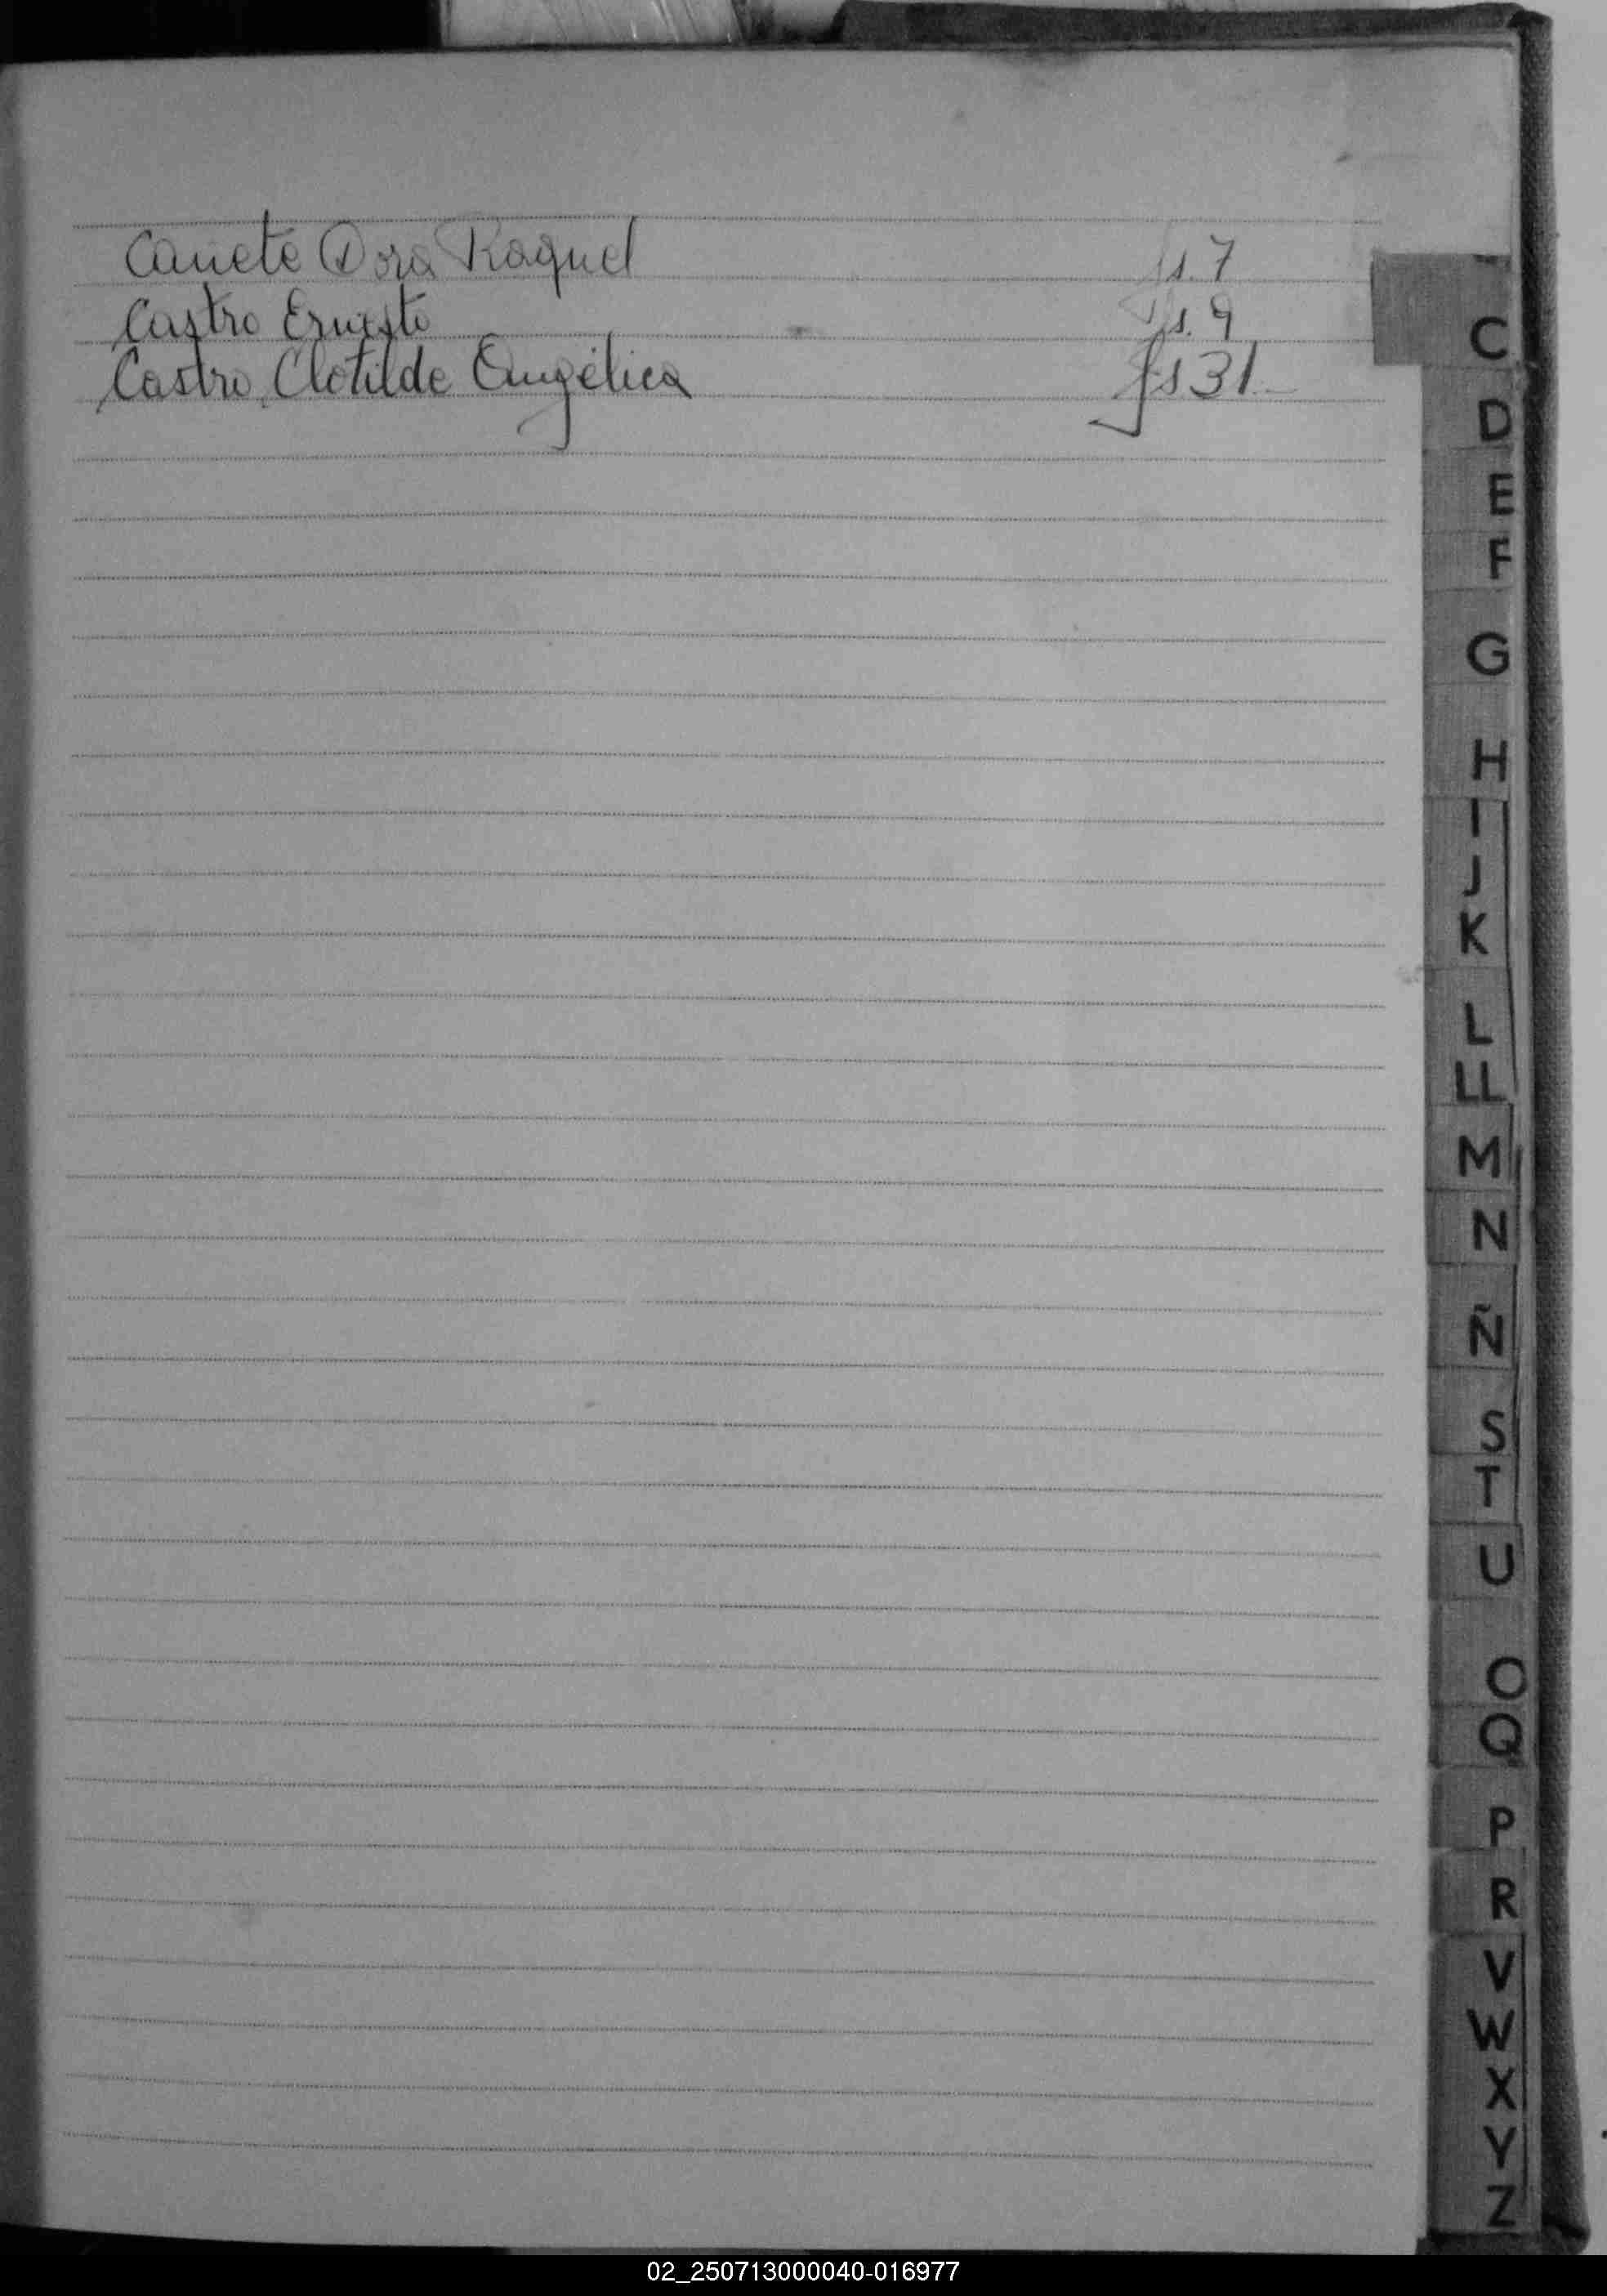 Canete Dora Raquel fs. 7
Castro Ernesto fs. 9
Castro Clotilde Angélica fs 31
C
D
E
F
G
H
I
J
K
L
LL
M
N
Ñ
S
T
U
O
Q
P
R
V
W
X
Y
Z
02_250713000040-016977